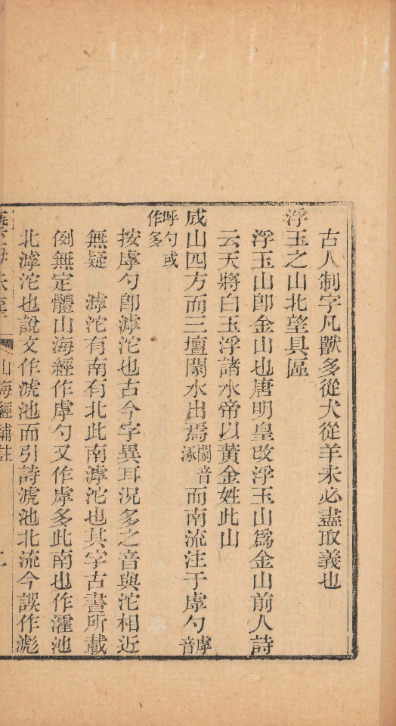 古人制字凡獸多從犬從羊未必盡取義也
浮玉之山北望具區
浮玉山卽金山也唐明皇攺浮玉山爲金山前人詩
云天將白玉浮諸水帝以黃金姓此山
成山四方而三壇䦘水出焉䦘音涿而南流注于虖勺虖音
呼勺或作多
按虖勺卽滹沱也古今字異耳況多之音與沱相近
無疑 滹沱有南有北此南滹沱也其字古書所載
例無定體山海經作虖勺又作虖多此南也作滹池
北滹沱也說文作淲池而引詩淲池北流今誤作滮
山海經補註